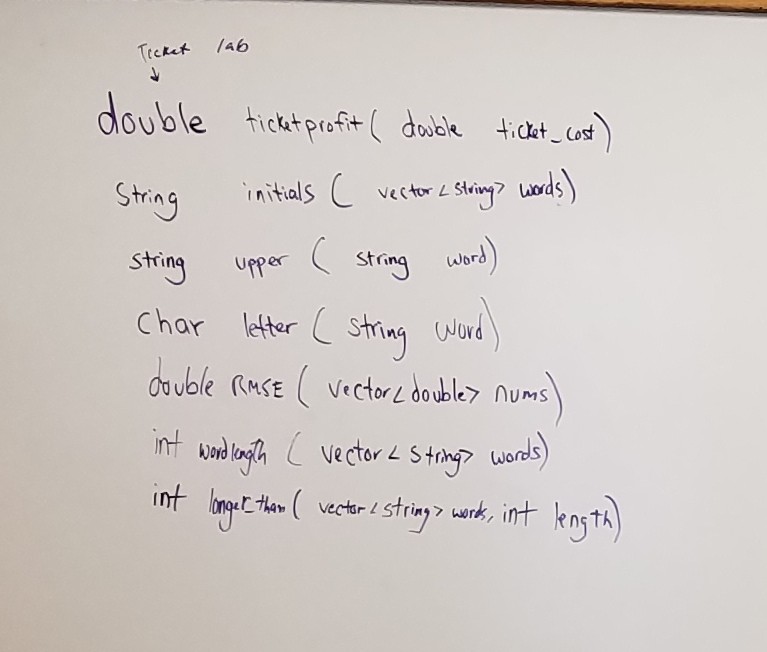 Ticket lab
↓
double ticketprofit( double ticket_cost)
String initials ( vector<string> words)
string upper ( string word)
Char letter ( string word)
double RMSE ( vector<double> nums)
int wordlength ( vector<string> words)
int longer_than ( vector<string> words, int length)